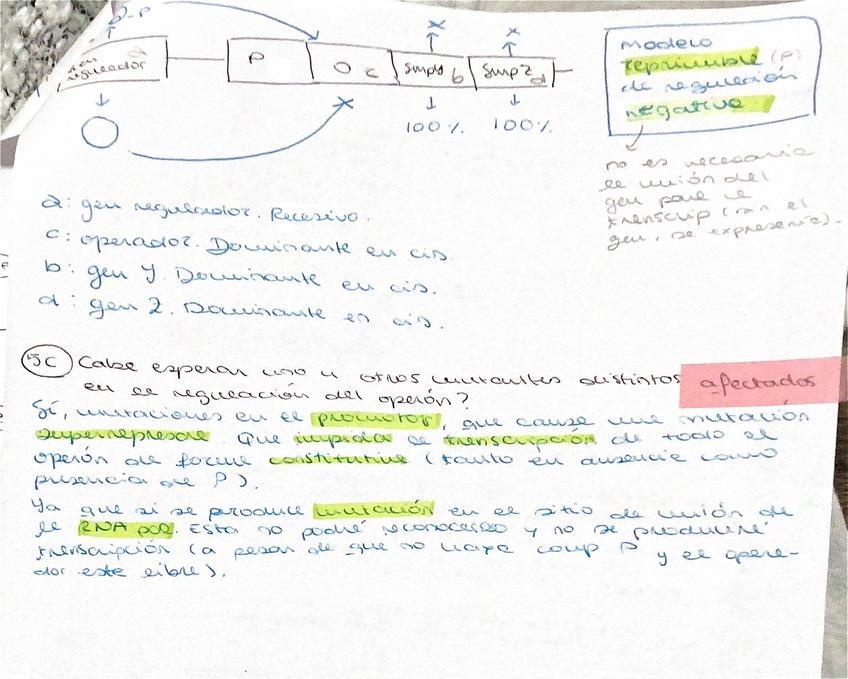 R-P
gen
regulador a
P
O c
Smp Y b
Smp Z d
100%
100%
modelo
reprimible (P)
de regulación
negativa
no es necesaria
la unión del
gen para la
transcrip (sin el
gen, se expresaría).
a: gen regulador. Recesivo.
c: operador. Dominante en cis.
b: gen Y. Dominante en cis.
d: gen Z. Dominante en cis.
5c Cabe esperar uno u otros mutantes distintos afectados
en la regulación del operón?
Sí, mutaciones en el promotor, que cause una mutación
superrepresora. Que impida la transcripción de todo el
operón de forma constitutiva (tanto en ausencia como
presencia de P).
Ya que si se produce mutación en el sitio de unión de
la RNA pol. Esta no podrá reconocerlo y no se producirá
transcripción (a pesar de que no haya P y el opera-
dor este libre).